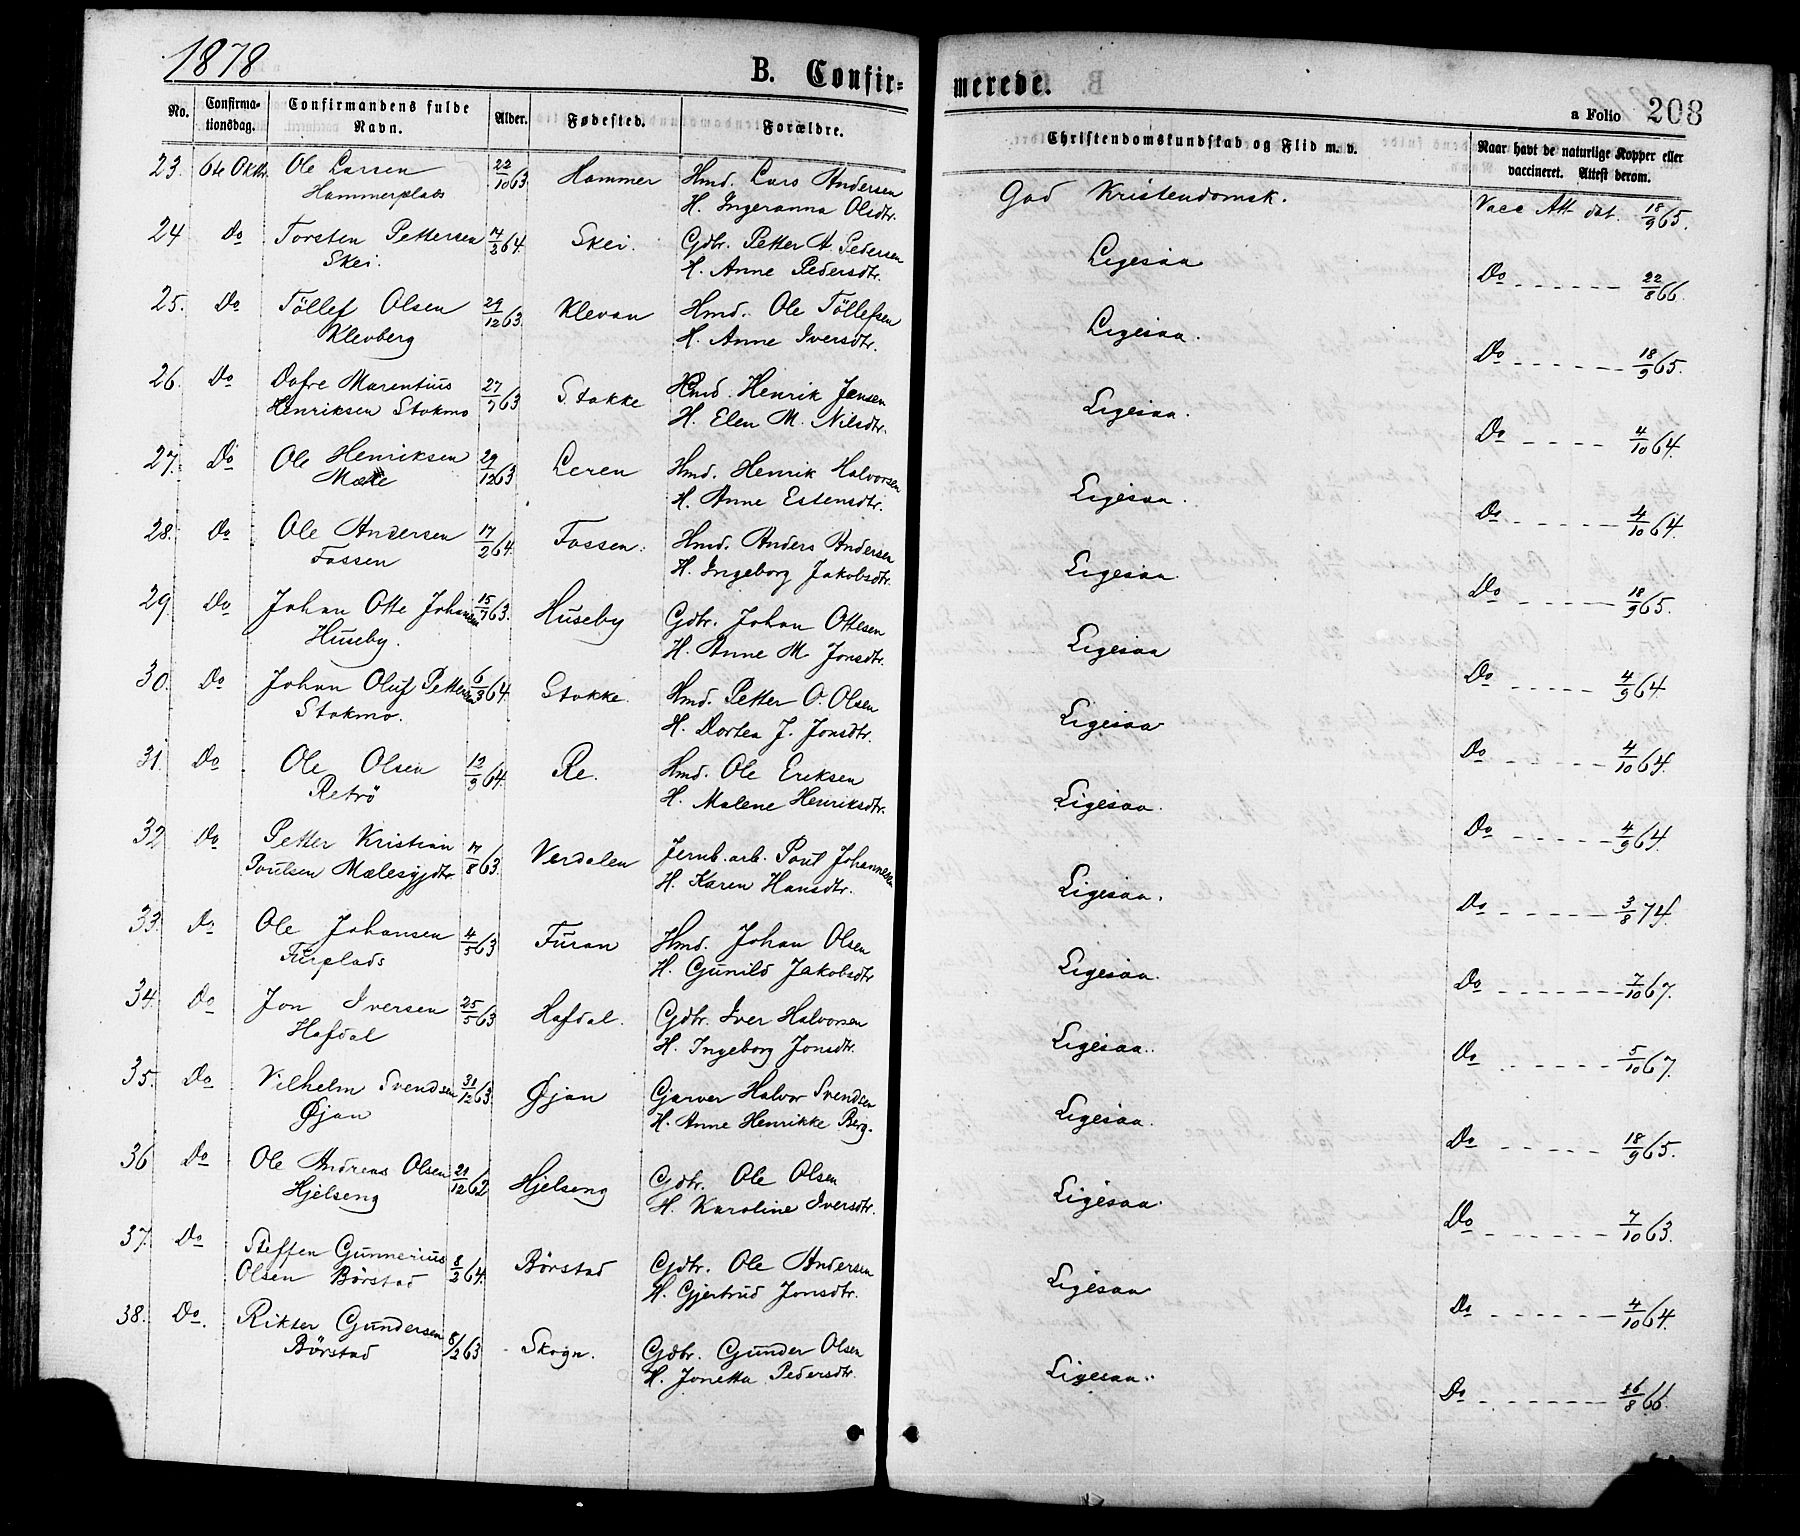 1878
B. Confirmerede.
a Folio 208
No. Confirmationsdag. Confirmandens fulde Navn. Alder. Fødested. Forældre. Christendomskundskab og Flid m. v. Naar havt de naturlige Kopper eller vaccineret. Attest derom.
23. 6te Oktbr. Ole Larsen 22/10 63. Hammer Hmd. Lars Andersen God Kristendomsk. Vacc Att dat. 18/9 65.
Hammerplads H. Ingeranna Olsdtr.
24 Do Torsten Pettersen 64. Skei. Gdbr. Petter A. Pedersen Ligesaa Do 22/8 66.
Skei. H. Anne Pedersdtr.
25. Do Töllef Olsen 29/12 63. Klevan Hmd. Ole Töllefsen Ligesaa. Do 18/9 65.
Klevberg H. Anne Iversdtr.
26. Do Dofre Marentius 27/7 63 Stokke Hmd. Henrik Jensen Ligesaa. Do 4/10 64.
Henriksen Stokmo H. Elen M. Nilsdtr.
27. Do Ole Henriksen 29/12 63 Leren Hmd. Henrik Halvorsen Ligesaa. Do 4/10 64.
H. Anne Estensdtr.
28. Do Ole Andersen 17/2 64. Fossen. Hmd. Anders Andersen Ligesaa. Do 18/9 65.
Fossen H. Ingeborg Jakobsdtr.
29 Do Johan Otte Johansen 15/7 63. Huseby Gdbr. Johan Ottesen Ligesaa Do 4/9 64.
Huseby. H. Anne M. Jonsdtr.
30. Do Johan Oluf Pettersen 6/3 64. Stokke. Hmd. Petter O. Olsen Ligesaa Do 4/10 64.
Stokmo. H. Dortea J. Jonsdtr.
31. Do Ole Olsen 12/3 64. Re. Hmd. Ole Eriksen Ligesaa. Do 4/9 64.
Retrö H. Malene Henriksdtr.
32 Do Petter Kristian 63. Verdalen Jernb. arb. Poul Johannesen Ligesaa. Do 3/8 74.
Poulsen H. Karen Hansdtr.
33. Do Ole Johansen 4/5 63 Furan Hmd. Johan Olsen Ligesaa. Do 7/10 67.
Furplads H. Gunild Jakobsdtr
34. Do Jon Iversen 25/5 63 Hafdal. Gdbr. Iver Halvorsen Ligesaa. Do 5/10 67.
Hafdal H. Ingeborg Jonsdtr.
35. Do Vilhelm Svendsen 31/12 63. Øjan Garver Halvor Svendsen Ligesaa. Do 18/9 65.
Øjan H. Anne Henrikke Berg.
36 Do Ole Andreas Olsen 21/12 62 Hjelseng Gdbr. Ole Olsen Ligesaa. Do 7/10 63.
Hjelseng H. Karoline Iversdtr.
37. Do Steffen Gunnerius 8/2 64. Börstad Gdbr. Ole Andersen Ligesaa Do 4/10 64.
Olsen Börstad H. Gjertrud Jonsdtr.
38. Do. Rikter Gundersen 8/2 63 Skogn. Gdbr. Gunder Olsen Ligesaa. Do 66.
Börstad H. Jonetta Pedersdtr.